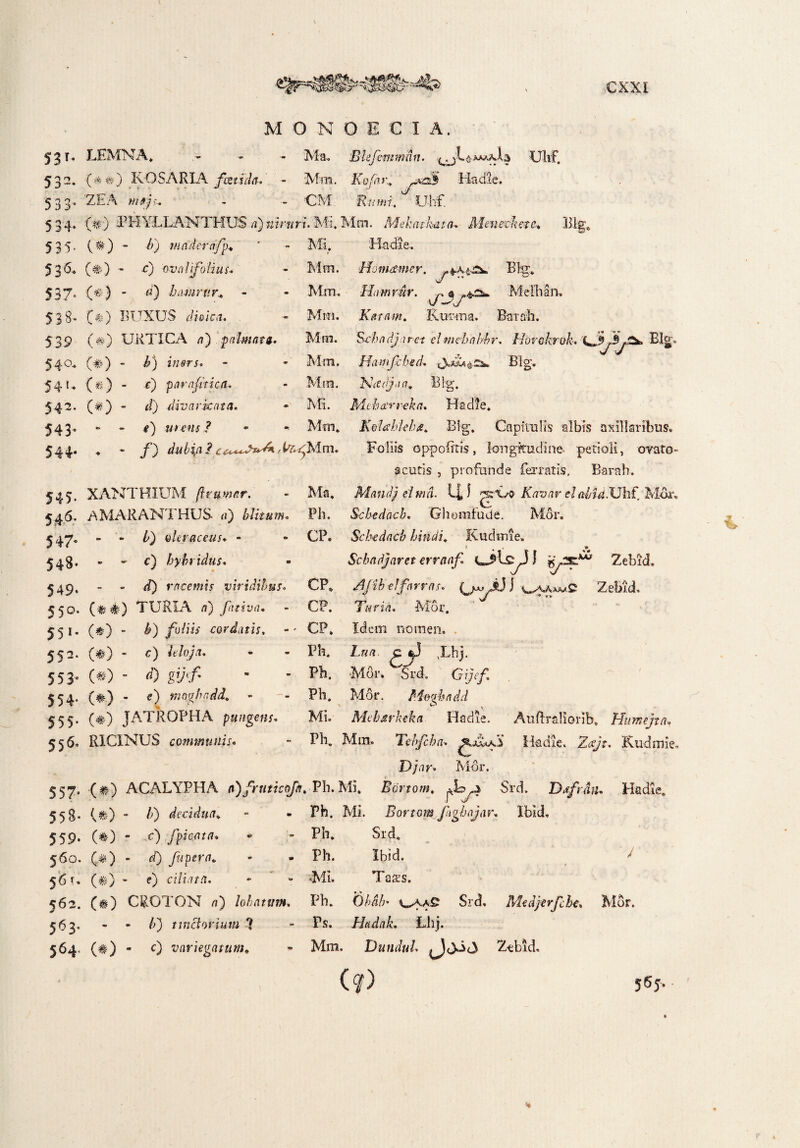 CXXI
MONOECIA.
531. LEMNA. - - - Ma. Blefcmmân. Uhf.
532. (**) KOSARIA fœtida. - Mm. Kofar. قصر Hadîe.
533. ZEA majs. - - CM Rumi. Uhf.
534. (*) PHYLLANTHUS a) niruri. Mi. Mm. Mekatkata. Meneckete. Blg.
535. (*) - b) maderasp. - Mi. Hadîe.
536. (*) - c) ovalifolius. - Mm. Homæmer. Blg.
537. (*) - d) hamrur. - - Mm. Hamrûr. حمرور Melhân.
538. (*) BUXUS dioica. - Mm. Katam. Kurma. Barah.
539 (*) URTICA a) palmata. Mm. Schadjaret elmehabhr. Horokrok. حرقرق Blg.
540. (*) - b) iners. - - Mm. Hamfched. Blg.
541. (*) - c) parasitica. - Mm. Nædjaa. Blg.
542. (*) - d) divaricata. - Mi. Mehærreka. Hadîe.
543. - - e) urens? - - Mm. Kolæhlehæ. Blg. Capitulis albis axillaribus.
544. * - f) dubia? Mm. Foliis oppofitis, longitudine petioli, ovato-
acutis, profunde ferratis. Barah.
545. XANTHIUM strumar. - Ma. Mandj el mâ. Kavar el abid. Uhf. Môr.
546. AMARANTHUS a) blitum. Ph. Schedach. Ghomfude. Môr.
547. - - b) oleraceus. - - CP. Schedach hindi. Kudmîe.
548. - - c) hybridus. - Schadjaret erraaf. شجرة الرعاف Zebîd.
549. - - d) racemis viridibus. CP. Afib elfarras. Zebîd.
550. (**) TURIA a) sativa. - CP. Turia. Môr.
551. (*) - b) foliis cordatis. - - CP. Idem nomen.
552. (*) - c) leloja. - - Ph. Lua. Lhj.
553. (*) - d) gijef. - - Ph. Môr. Srd. Gijef.
554. (*) - e) moghadd. - - Ph. Môr. Moghadd
555. (*) JATROPHA pungens. Mi. Mehærkeka Hadîe. Auftraliorib. Humejta.
556. RICINUS communis. - Ph. Mm. Tebfcha. Hadîe. Zæjt. Kudmie.
Djar. Môr.
557. (*) ACALYPHA a) fruticosa. Ph. Mi. Börtom. برطم Srd. Dafrân. Hadîe.
558. (*) - b) decidua. - - Ph. Mi. Bortom faghajar. Ibid.
559. (*) - c) spicata. - - Ph. Srd.
560. (*) - d) supera. - - Ph. Ibid.
561. (*) - e) ciliata. - - Mi. Taæs.
562. (*) CROTON a) lobatum. Ph. Ohâb. Srd. Medjerfche. Môr.
563. - - b) tinctorium? - Ps. Hadak. Lhj.
564. (*) - c) variegatum. - Mm. Dundul. دندل Zebîd.
(q) 565.